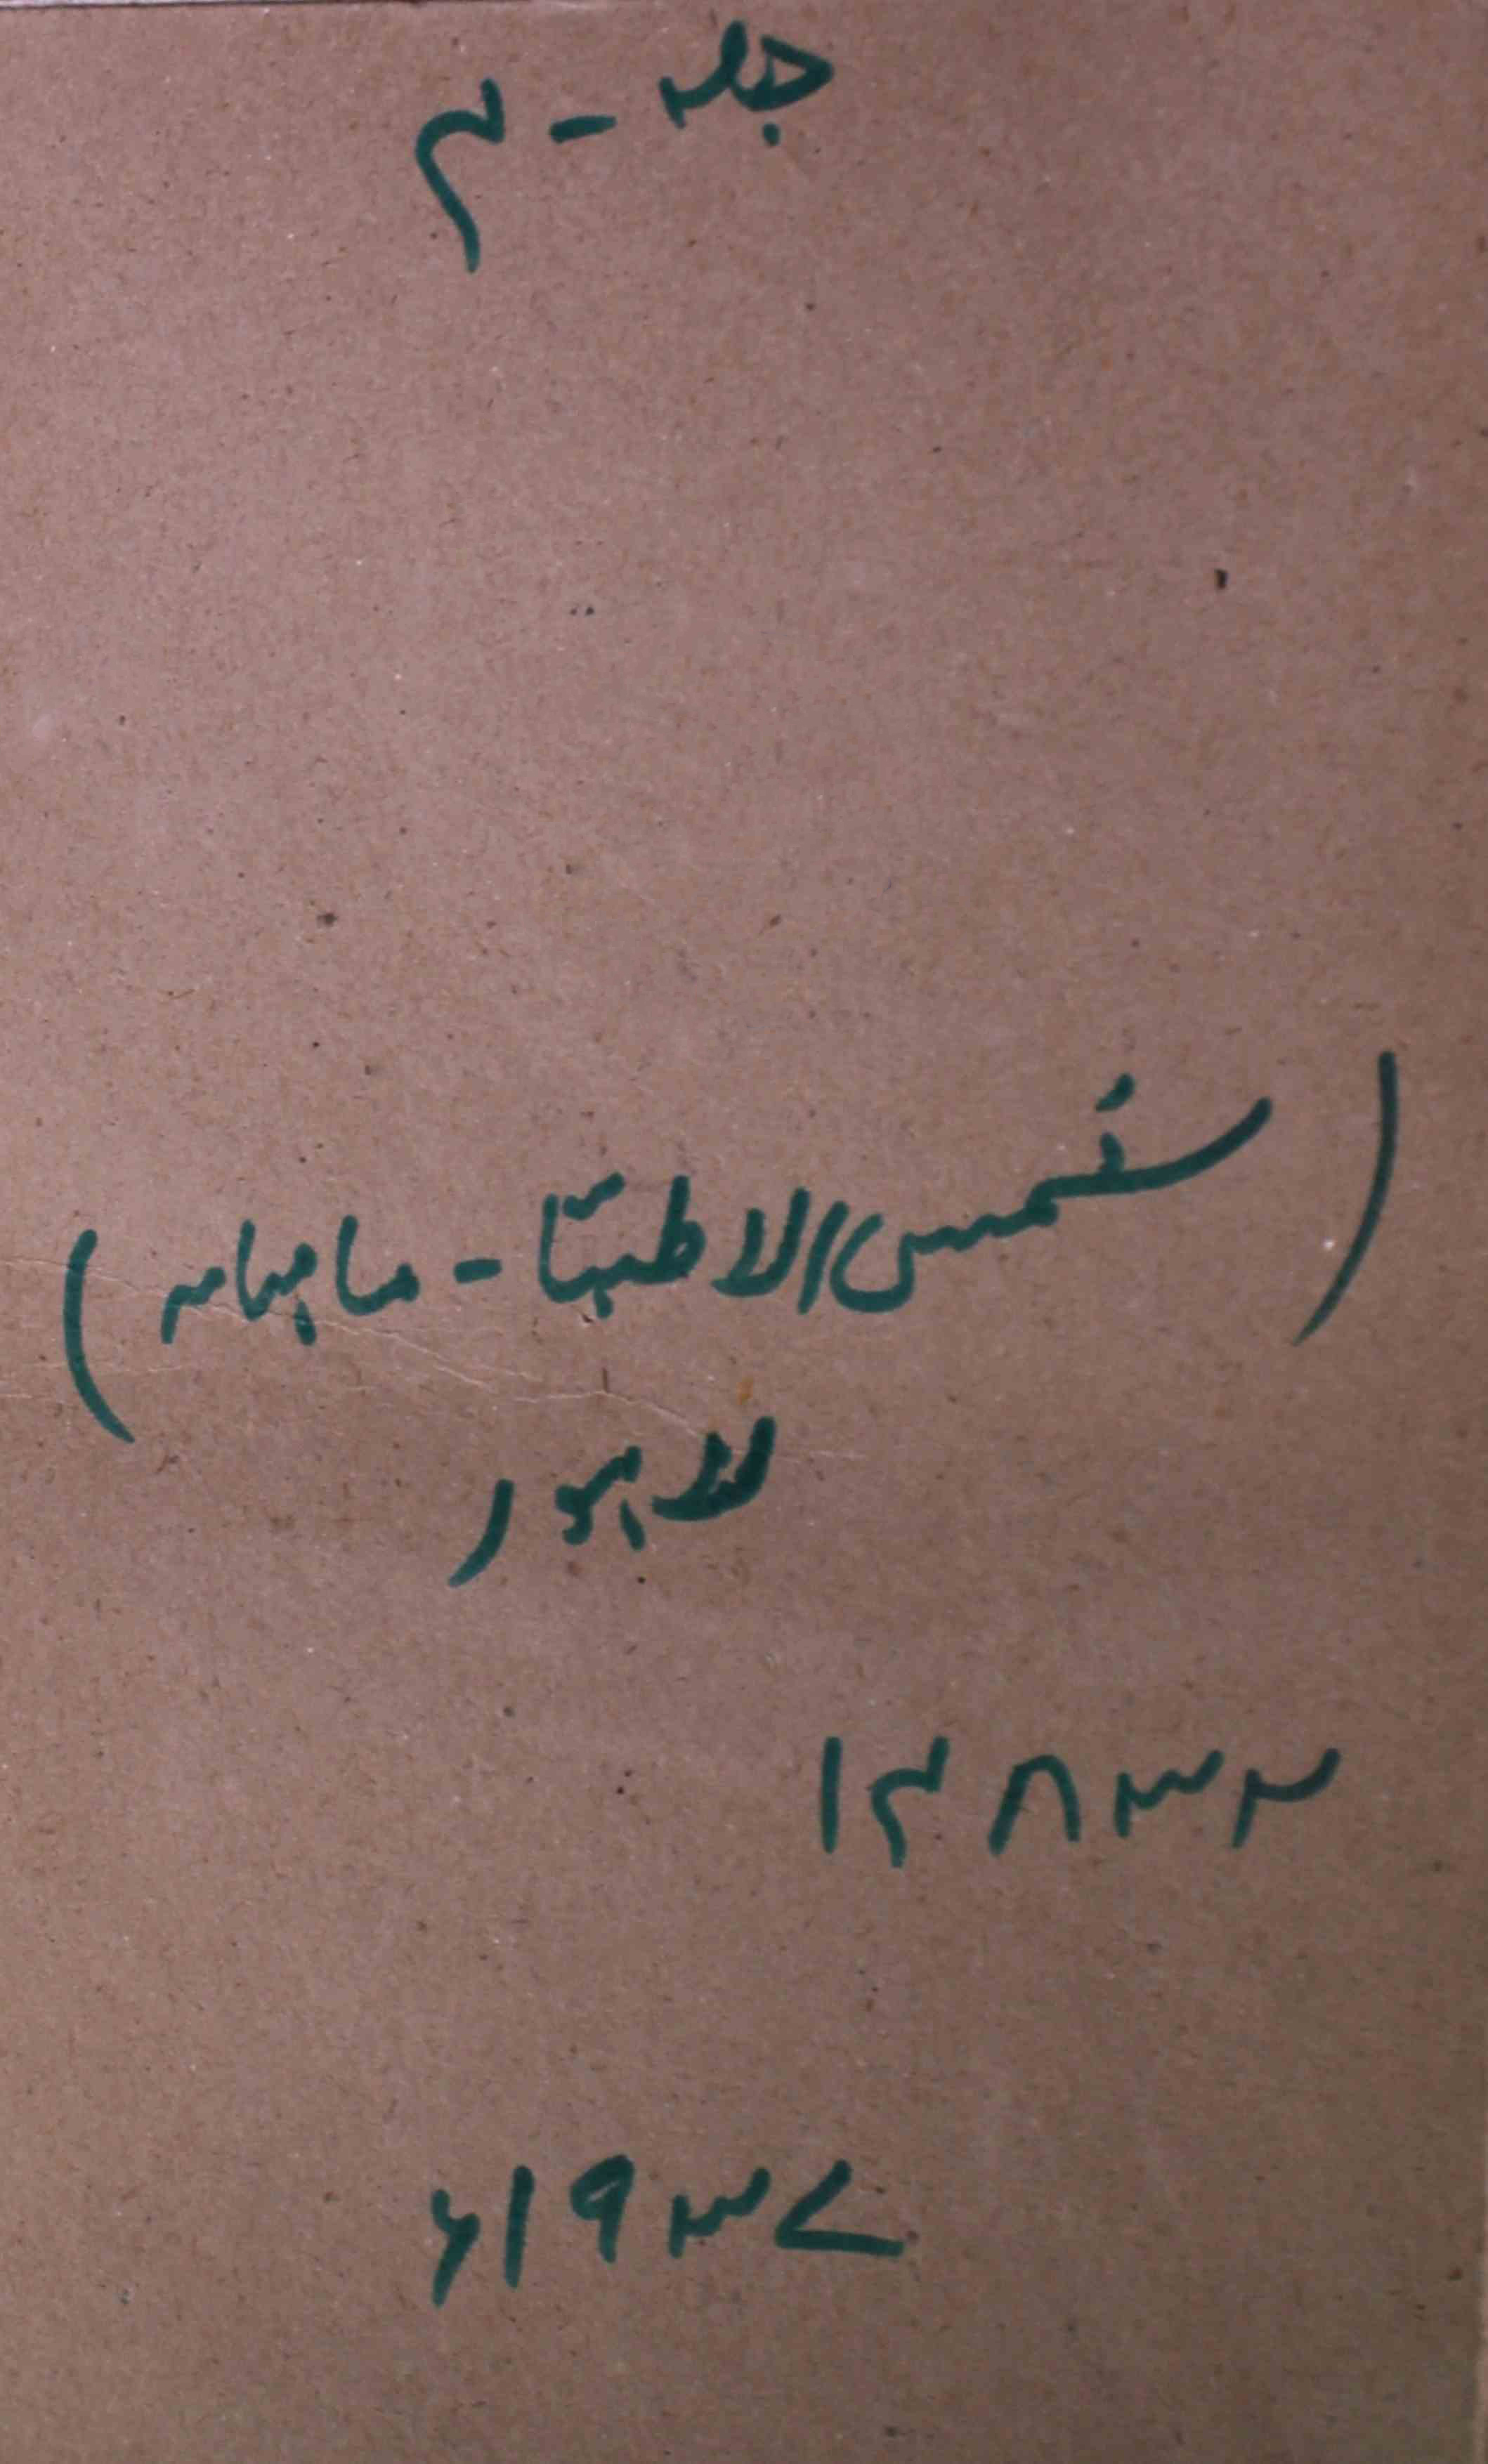 جلد - ۴
(شمس الاطبّا - ماہنامہ)
لاہور
۱۴۸۳۲
۱۹۳۷ء